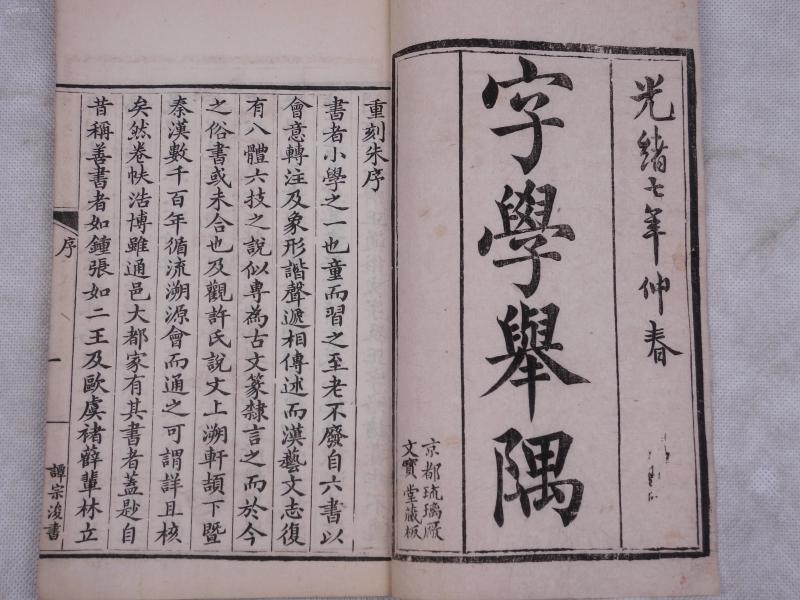 光緒七年仲春
字學舉隅
京都琉璃厰
文寶堂藏板
重刻朱序
書者小學之一也童而習之至老不廢自六書以
會意轉注及象形諧聲遞相傳述而漢藝文志復
有八體六技之說似專為古文篆隸言之而於今
之俗書或未合也及觀許氏說文上溯軒頡下暨
秦漢數千百年循流溯源會而通之可謂詳且核
矣然卷帙浩博雖通邑大都家有其書者蓋尠自
昔稱善書者如鍾張如二王及歐虞褚薛輩林立
序
一
譚宗浚書